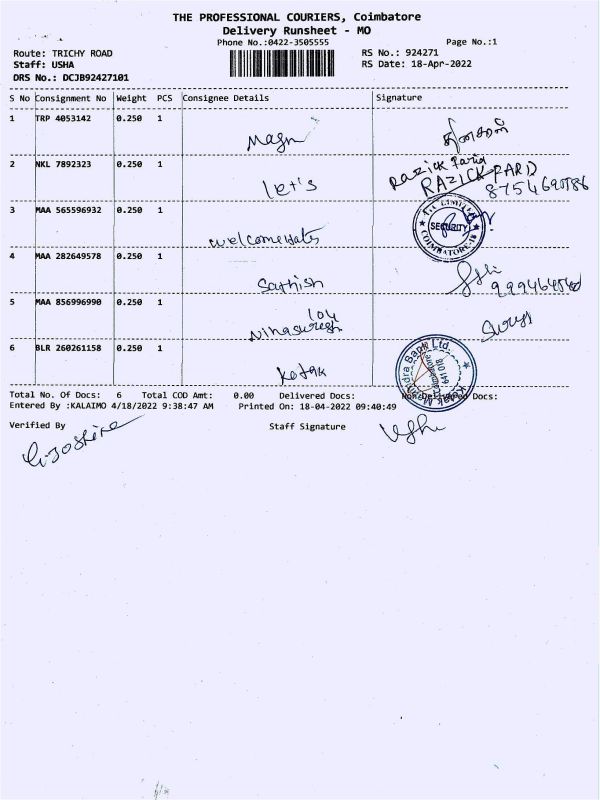 THE PROFESSIONAL COURIERS, Coimbatore
Delivery Runsheet - MO
Phone No.:0422-3505555
Page No.:1
Route: TRICHY ROAD
RS No.: 924271
Staff: USHA
RS Date: 18-Apr-2022
DRS No.: DCJB92427101
S No Consignment No Weight PCS Consignee Details Signature
1 TRP 4053142 0.250 1
2 NKL 7892323 0.250 1 let's Razick Farid
RAZICK FARD
3 MAA 565596932 0.250 1
SECURITY
COIMBATORE-18
4 MAA 282649578 0.250 1 Sathish
5 MAA 856996990 0.250 1
6 BLR 260261158 0.250 1 kotak
Kotak Mahindra Bank Ltd.
Coimbatore
641 018
Total No. Of Docs: 6 Total COD Amt: 0.00 Delivered Docs: Non-Delivered Docs:
Entered By :KALAIMO 4/18/2022 9:38:47 AM Printed On: 18-04-2022 09:40:49
Verified By Staff Signature